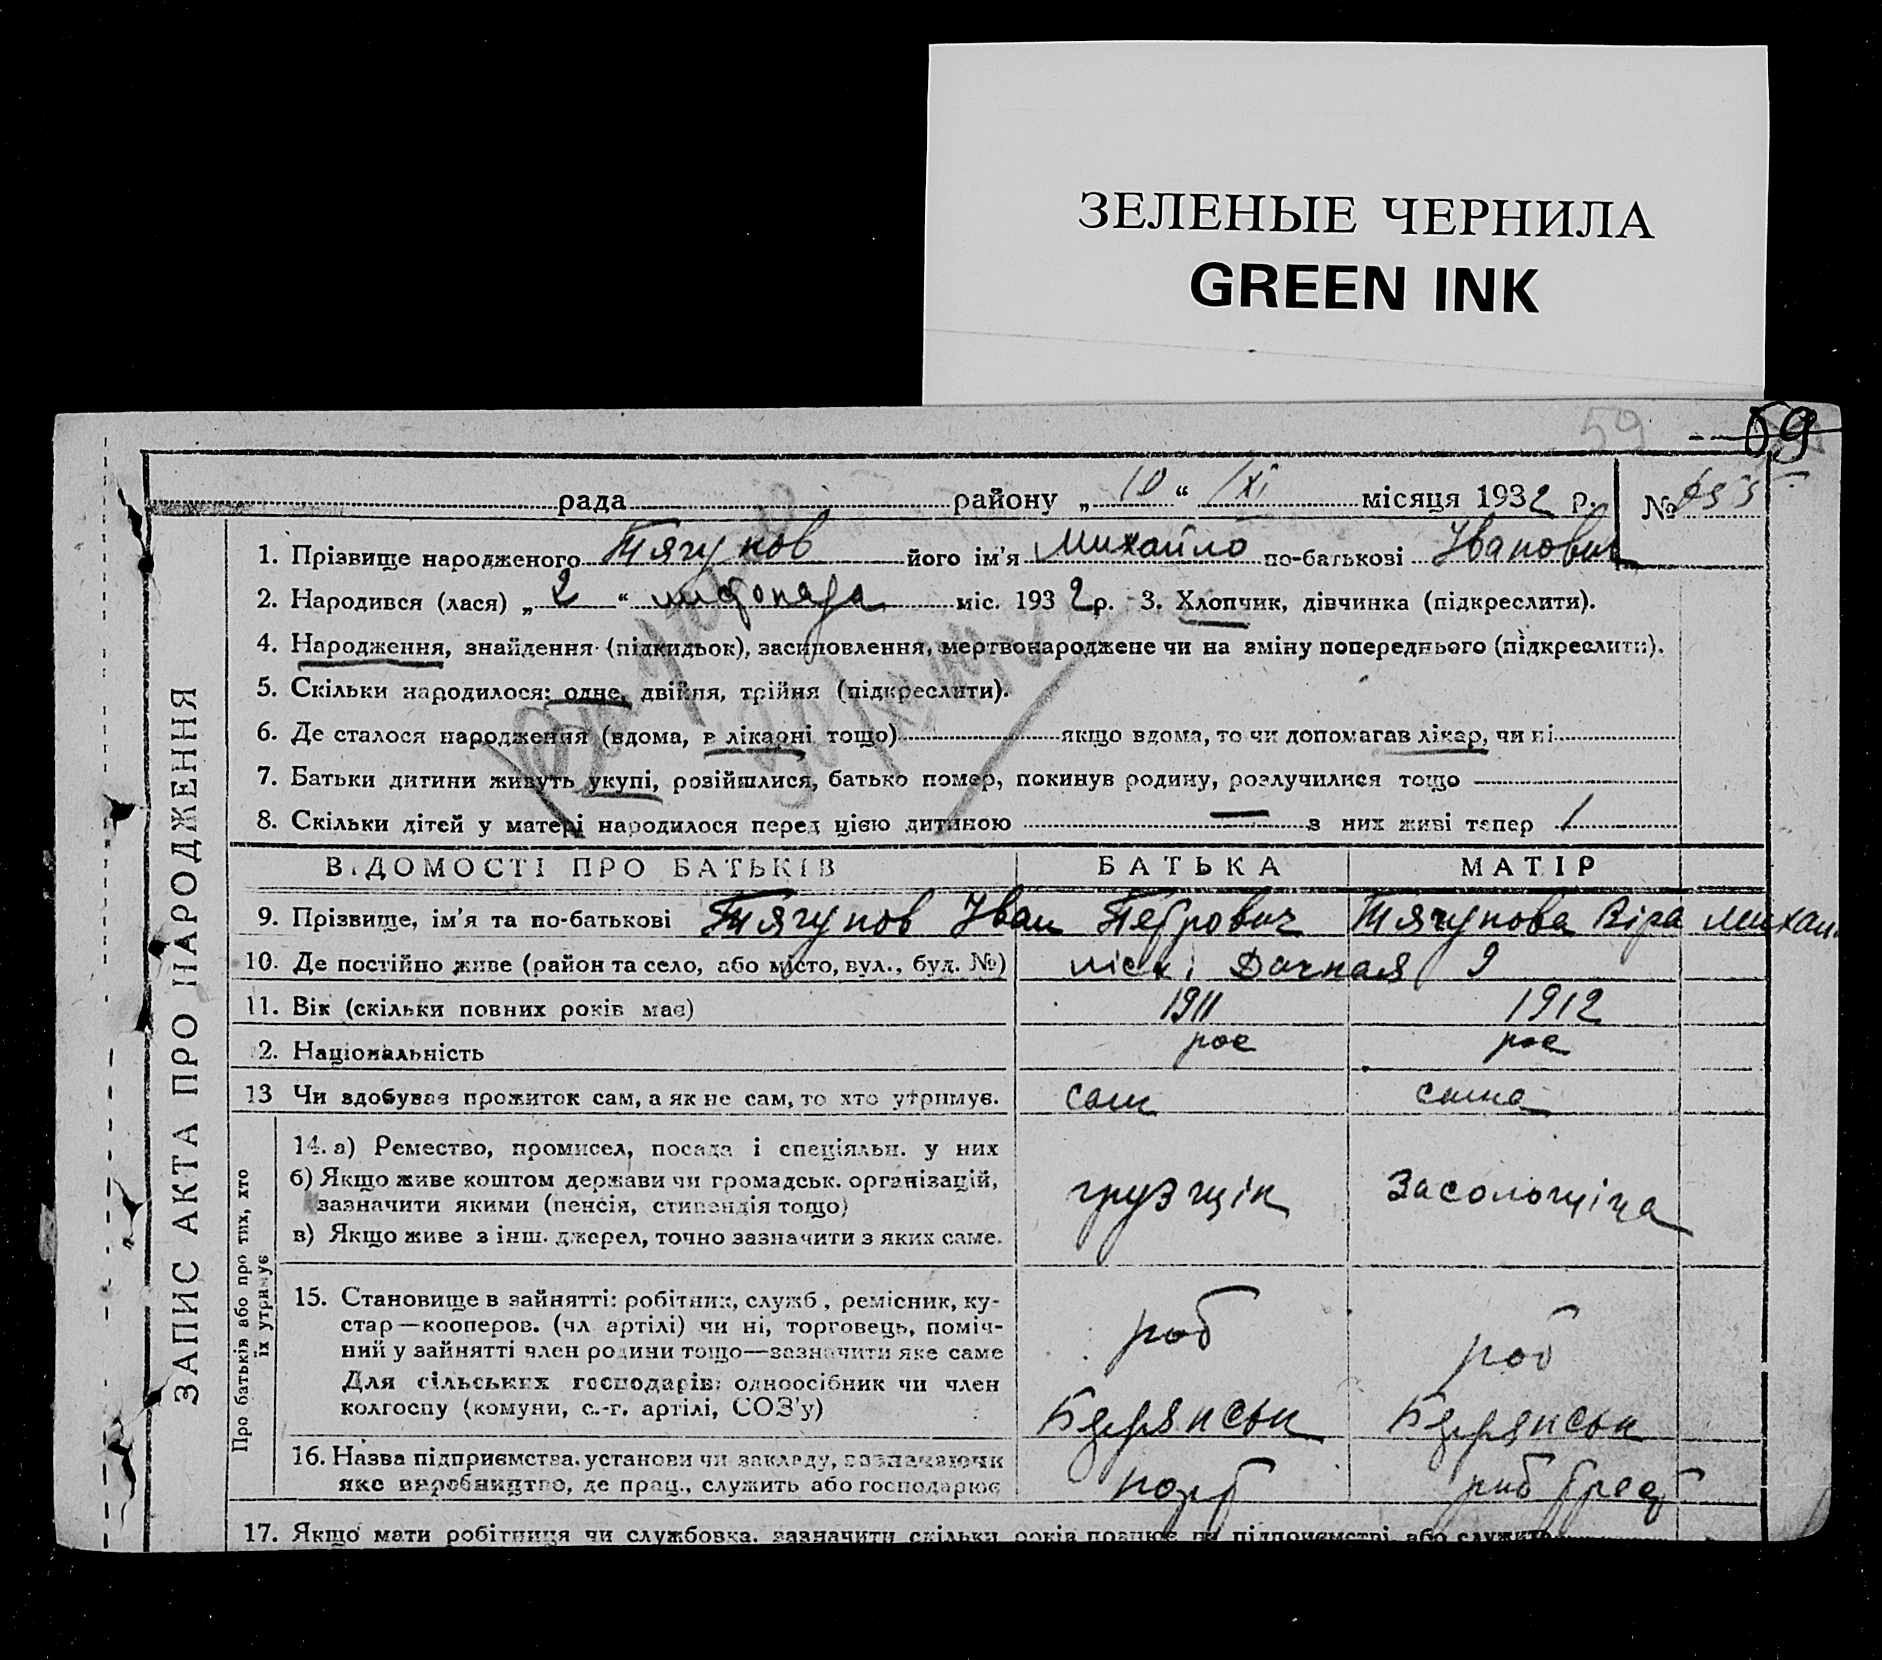 ЗЕЛЕНЫЕ ЧЕРНИЛА
GREEN INK
59 59
рада району „ 10 “ XI місяця 1932 р. №
ЗАПИС АКТА ПРО НАРОДЖЕННЯ
1. Прізвище народженого Тягунов його ім'я Михайло по-батькові Іванович
2. Народився (лася) „ 2 “ листопада міс. 1932 р. 3. Хлопчик, дівчинка (підкреслити).
4. Народження, знайдення (підкидьок), засиновлення, мертвонароджене чи на зміну попереднього (підкреслити).
5. Скільки народилося: одне, двійня, трійня (підкреслити).
6. Де сталося народження (вдома, в лікарні тощо) якщо вдома, то чи допомагав лікар, чи ні
7. Батьки дитини живуть укупі, розійшлися, батько помер, покинув родину, розлучилися тощо
8. Скільки дітей у матері народилося перед цією дитиною — з них живі тепер 1
ВІДОМОСТІ ПРО БАТЬКІВ БАТЬКА МАТІР
9. Прізвище, ім'я та по-батькові Тягунов Іван Петрович Тягунова Віра Михай.
10. Де постійно живе (район та село, або місто, вул., буд. №) Дачная 9
11. Вік (скільки повних років має) 1911 1912
2. Національність рос рос
13 Чи здобував прожиток сам, а як не сам, то хто утримує. сам сама
Про батьків або про тих, хто
їх утримує
14. а) Ремество, промисел, посада і спеціяльн. у них
б) Якщо живе коштом держави чи громадськ. організацій,
зазначити якими (пенсія, стипендія тощо)
в) Якщо живе з інш. джерел, точно зазначити з яких саме.
грузщік Засольщіца
15. Становище в зайнятті: робітник, служб., ремісник, ку-
стар—кооперов. (чл артілі) чи ні, торговець, поміч-
ний у зайнятті член родини тощо—зазначити яке саме
Для сільських господарів: одноосібник чи член
колгоспу (комуни, с.-г. артілі, СОЗ'у)
роб роб
Бердянськ Бердянськ
16. Назва підприємства, установи чи закладу, зазначаючи
яке виробництво, де прац., служить або господарює
порт
17. Якщо мати робітниця чи службовка, зазначити скільки років працює на підприємстві або служить